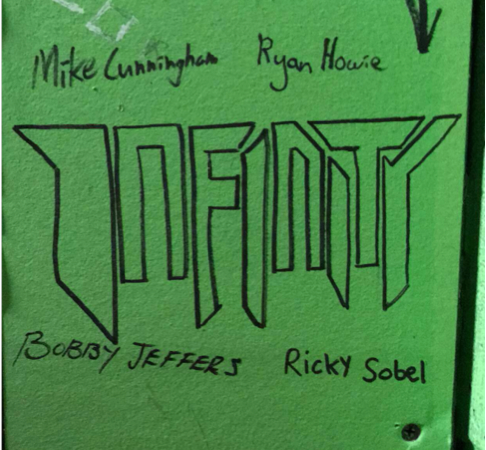 Mike Cunningham Ryan Howie
INFINITY
BOBBY JEFFERS Ricky Sobel